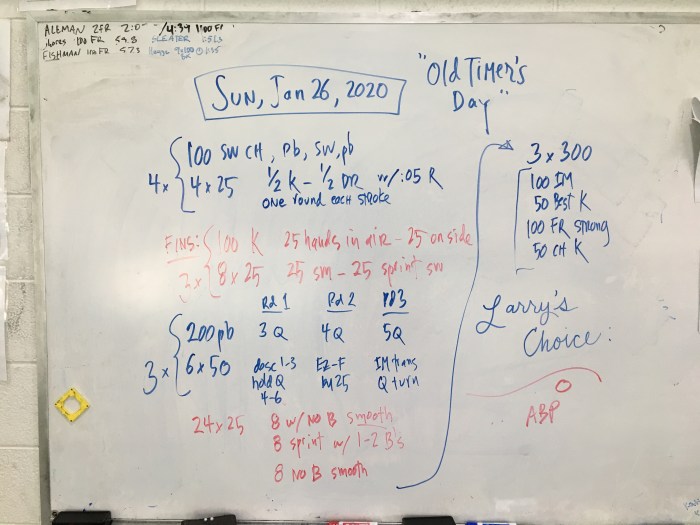 ALEMAN 2FR 2:0 1:00 FR
100 FR 59.8
FISHMAN 100 FR 57.3
Sun, Jan 26, 2020
"Old Timer's Day"
4x 100 SW CH, Pb, SW, pb
4 x 25 1/2 K - 1/2 DR w/ :05 R
one round each stroke
FINS: 100 K 25 hands in air - 25 on side
3x 8 x 25 25 sm - 25 sprint sw
Rd 1 Rd 2 RD3
3x 200 pb 3 Q 4Q 5Q
6 x 50 desc 1-3 EZ-F IM trans
hold Q by 25 Q turn
4-6
24 x 25 8 w/ No B smooth
8 sprint w/ 1-2 B's
8 No B smooth
3 x 300
100 IM
50 Best K
100 FR strong
50 CH K
Larry's
Choice:
ABP